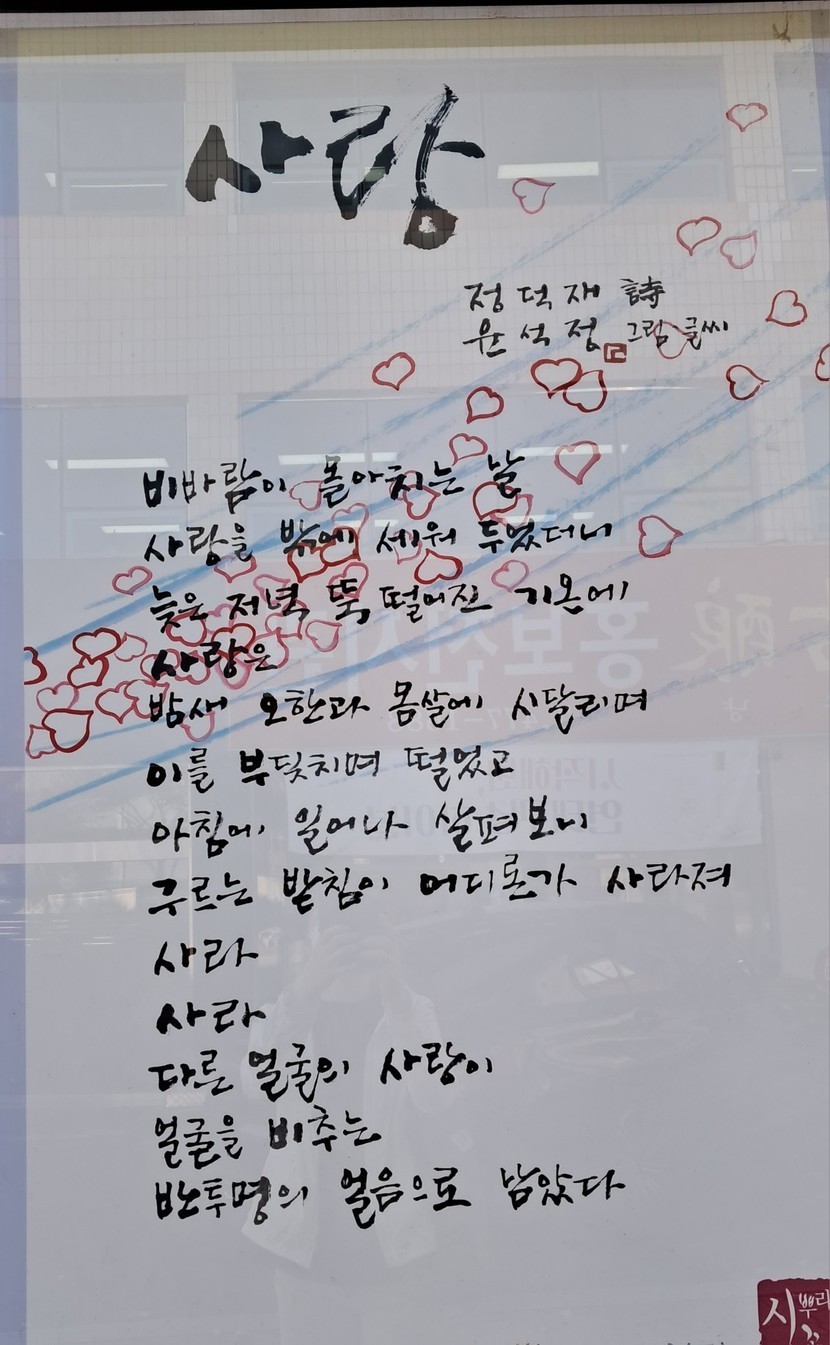 사랑
정덕재 詩
윤석정 그림 글씨
비바람이 몰아치는 날
사랑을 밖에 세워 두었더니
늦은 저녁 뚝 떨어진 기온에
사랑은
밤새 오한과 몸살에 시달리며
이를 부딪치며 떨었고
아침에 일어나 살펴보니
구르는 받침이 어디론가 사라져
사라
사라
다른 얼굴의 사랑이
얼굴을 비추는
반투명의 얼음으로 남았다
홍보전시관
시뿌리